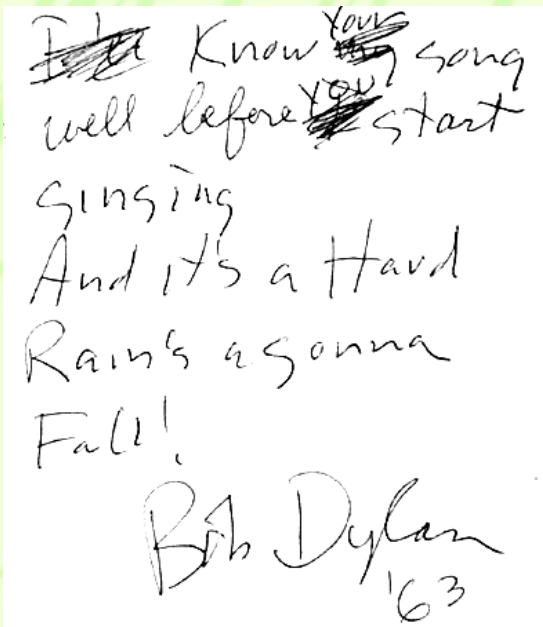 I'll Know Your my song
well before You I start
singing
And it's a Hard
Rain's a gonna
Fall!
Bob Dylan
'63